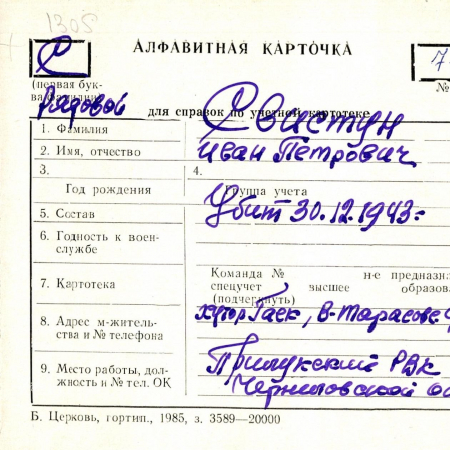 1305
АЛФАВИТНАЯ КАРТОЧКА
С
7
(первая бук-
ва фамилии)
№
рядовой
для справок по учетной картотеке
1. Фамилия Свистун
2. Имя, отчество Иван Петрович
3. 4.
Год рождения Группа учета
5. Состав Убит 30.12.1943г.
6. Годность к воен-
службе
Команда № н-е предназна
7. Картотека спецучет высшее образова
(подчеркнуть)
8. Адрес м-житель-
ства и № телефона
хутор Гаек, В-Тарасовс
9. Место работы, дол-
жность и № тел. ОК
Прилукский РВК
Черниговской об
Б. Церковь, гортип., 1985, з. 3589—20000